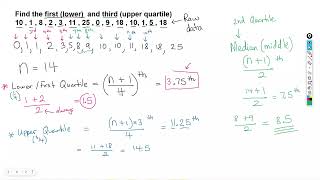 Find the first (lower) and third (upper quartile)
10 . 1 . 8 . 2 . 3 . 11 . 25 . 0 , 9 , 18 , 10 , 1 , 5 , 18
Raw data
0, 1, 1, 2, 3, 5, 8, 9, 10, 10, 11, 18, 18, 25
n = 14
* Lower / first Quartile = (n + 1)/4 th = 3.75th
(1/4)
1+2/2 = 1.5
* Upper Quartile = (n+1)×3/4 th = 11.25th
(3/4)
= 11+18/2 = 14.5
2nd Quartile
Median (middle)
(n+1/2)th
14+1/2 = 7.5th
8+9/2 = 8.5